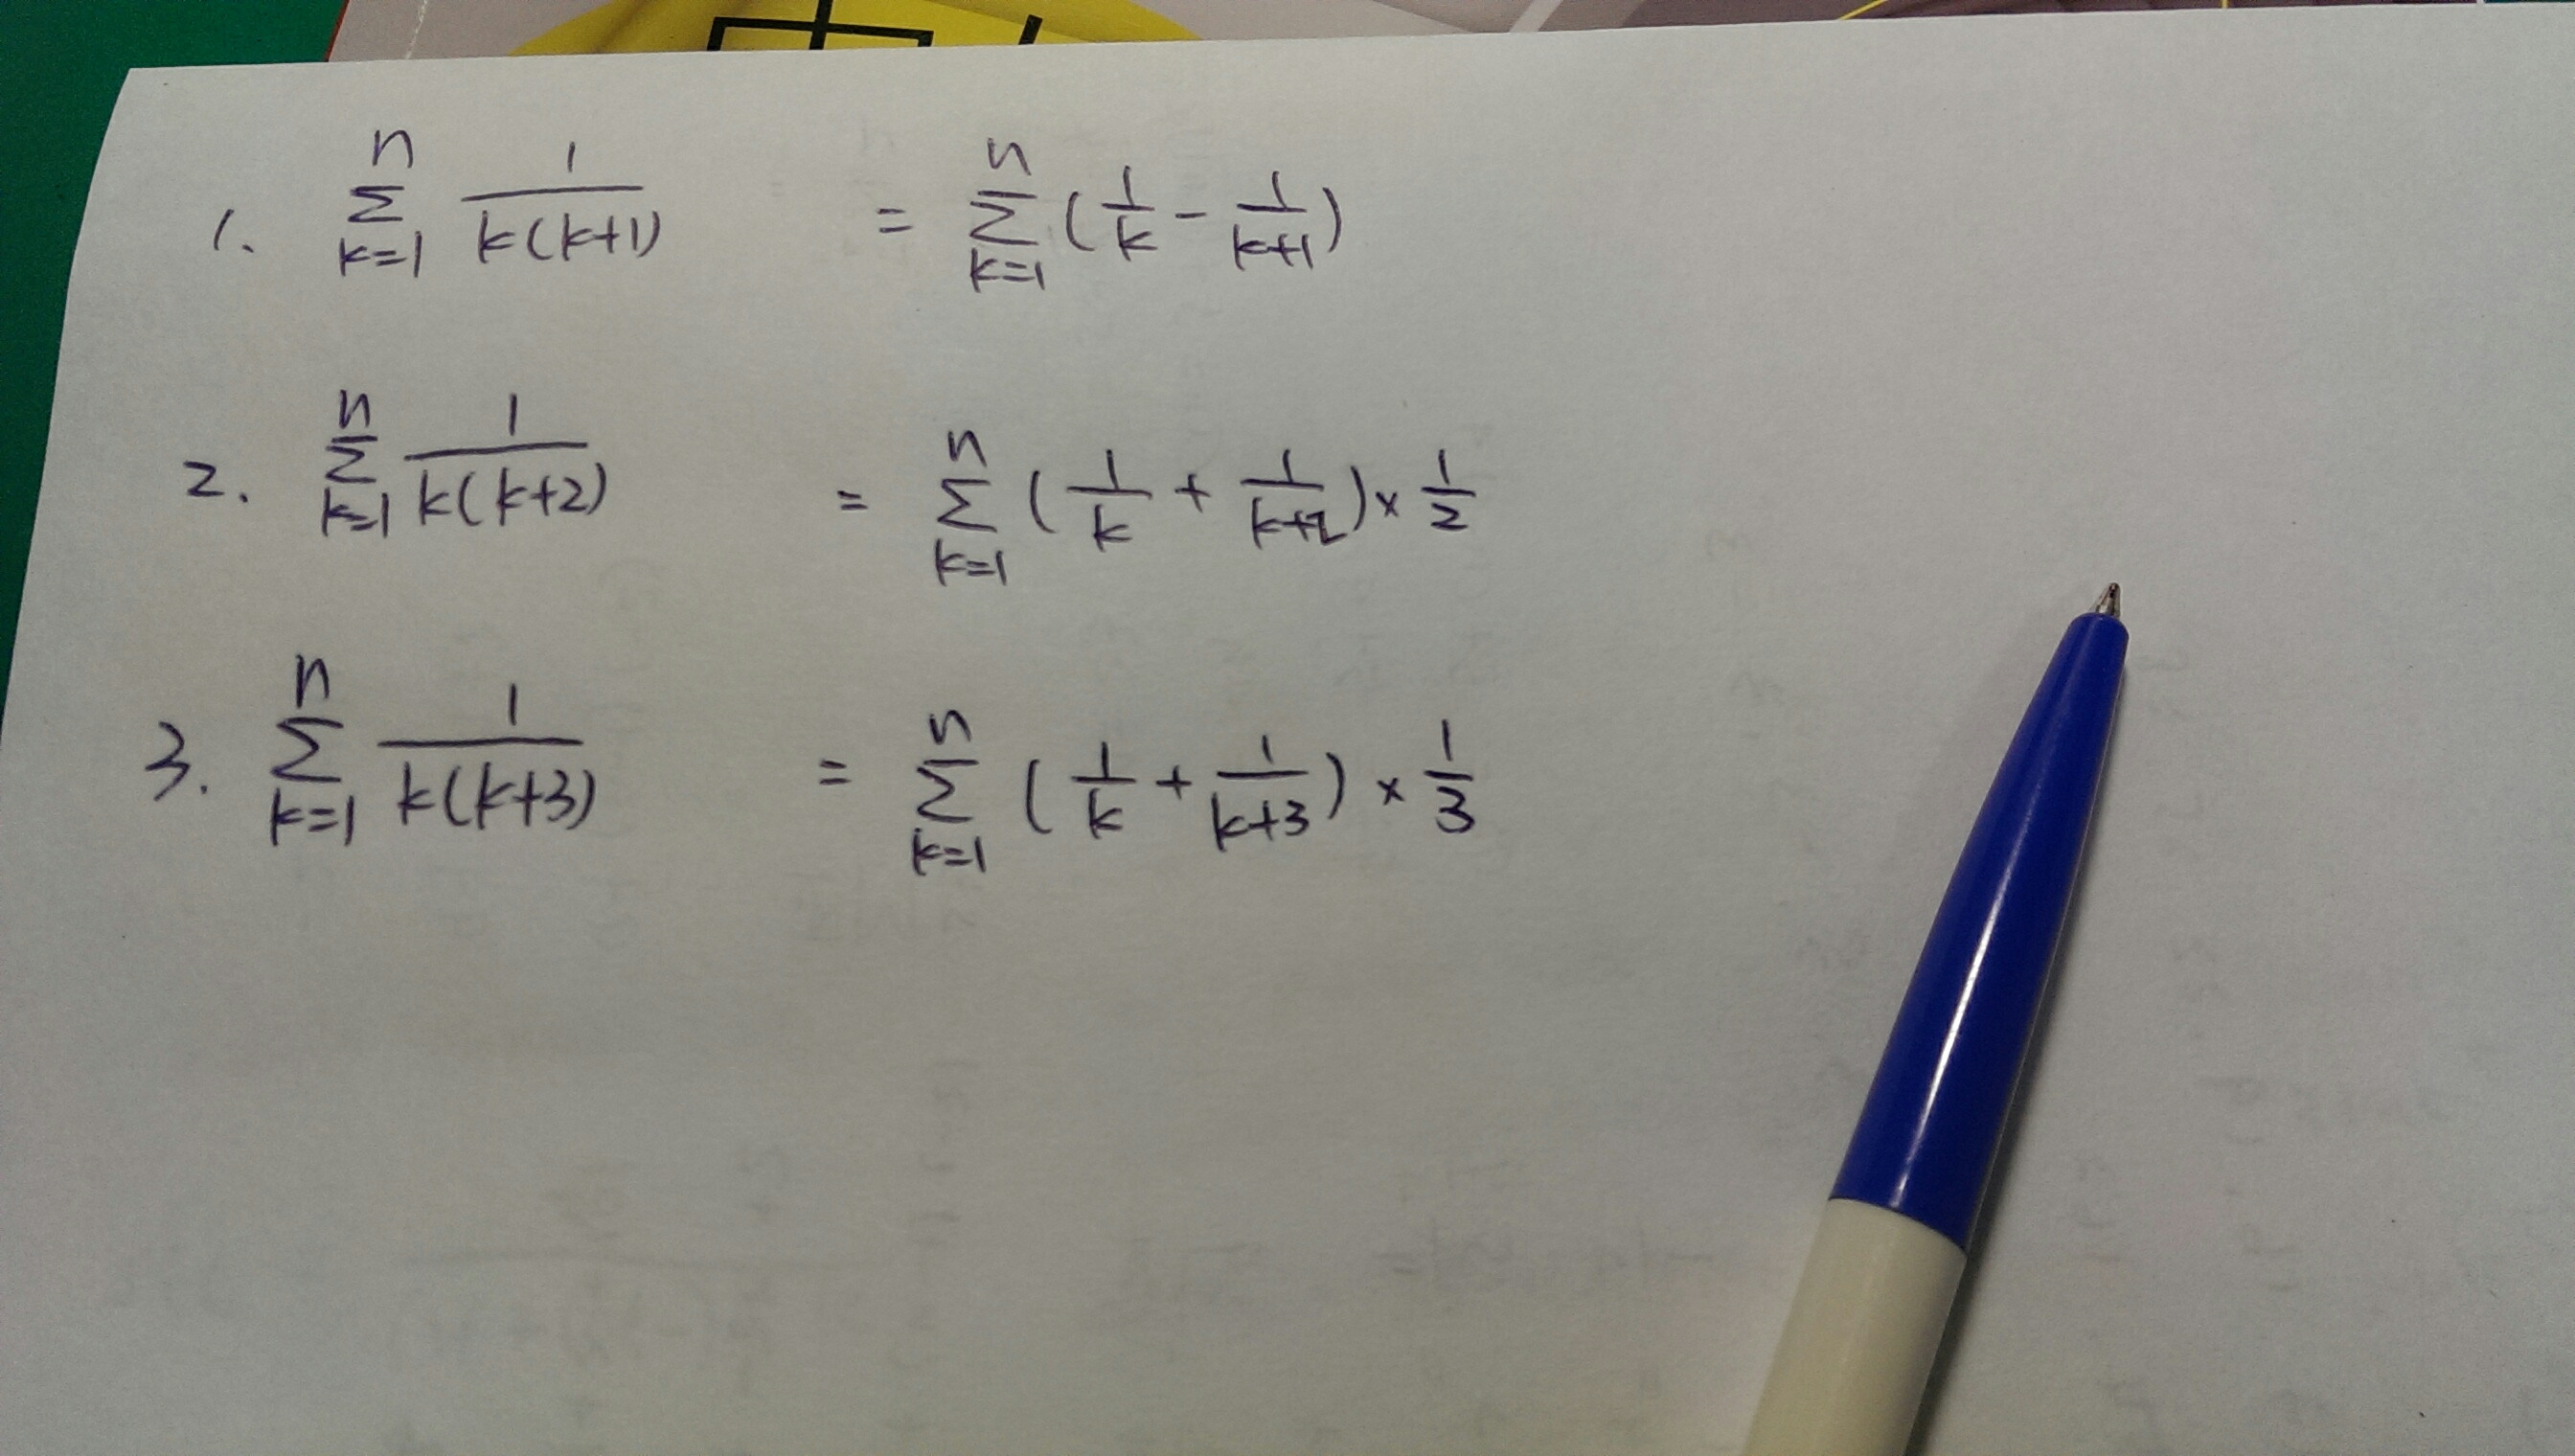 1. \sum_{k=1}^{n} \frac{1}{k(k+1)} = \sum_{k=1}^{n} (\frac{1}{k} - \frac{1}{k+1})
2. \sum_{k=1}^{n} \frac{1}{k(k+2)} = \sum_{k=1}^{n} (\frac{1}{k} + \frac{1}{k+2}) × \frac{1}{2}
3. \sum_{k=1}^{n} \frac{1}{k(k+3)} = \sum_{k=1}^{n} (\frac{1}{k} + \frac{1}{k+3}) × \frac{1}{3}